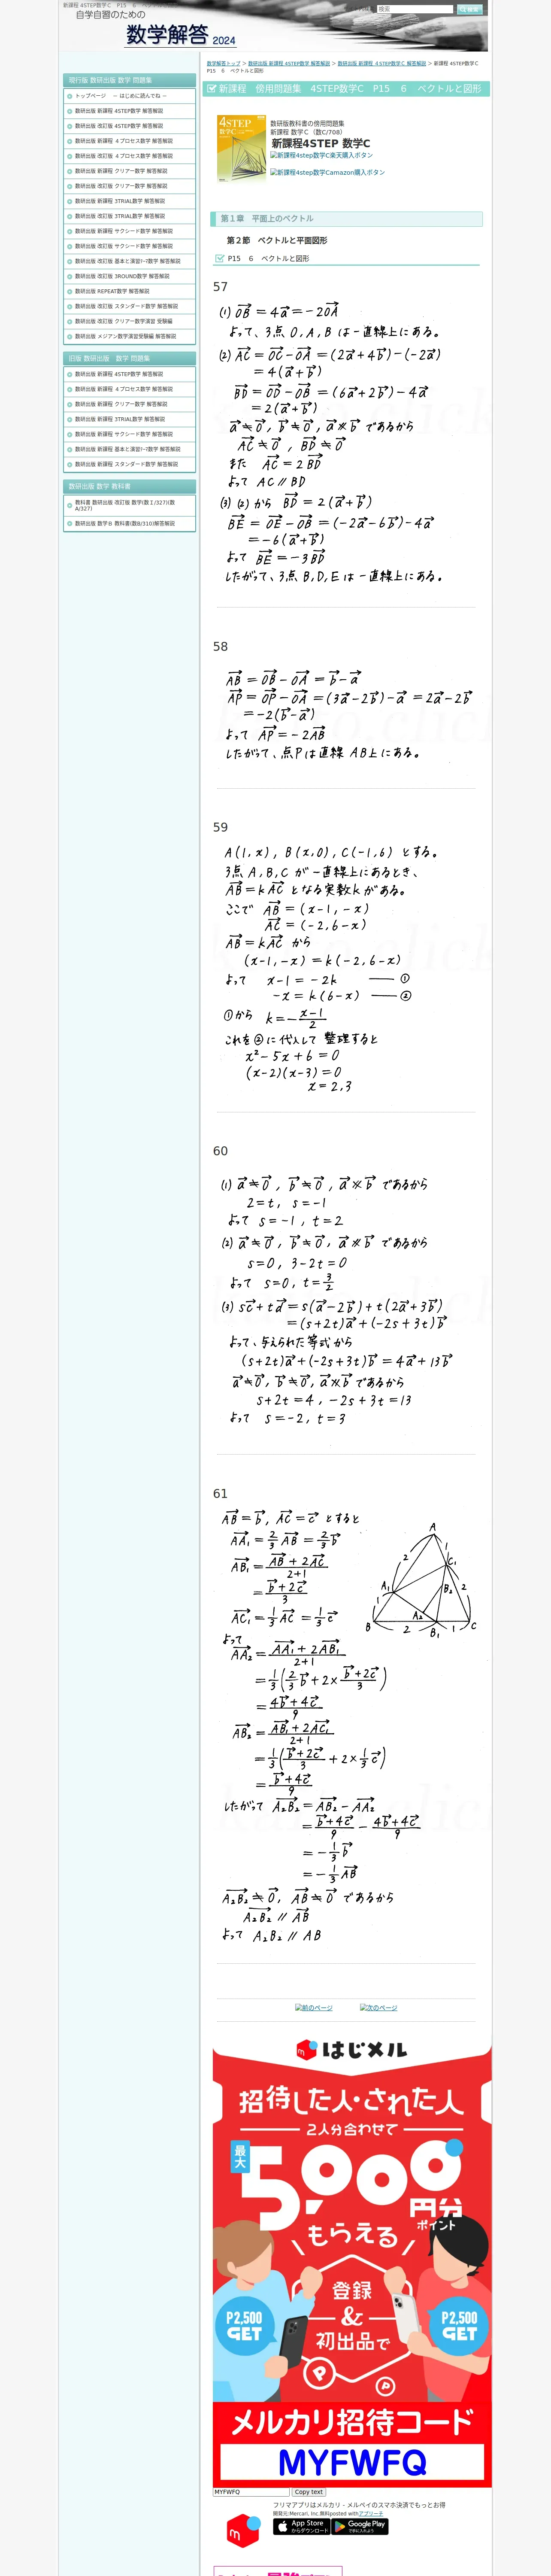 新課程 4STEP数学C P15 6 ベクトルと図形
自学自習のための
数学解答 2024
検索
数学解答トップ > 数研出版 新課程 4STEP数学 解答解説 > 数研出版 新課程 4STEP数学C 解答解説 > 新課程 4STEP数学C P15 6 ベクトルと図形
現行版 数研出版 数学 問題集
トップページ ― はじめに読んでね ―
数研出版 新課程 4STEP数学 解答解説
数研出版 改訂版 4STEP数学 解答解説
数研出版 新課程 4プロセス数学 解答解説
数研出版 改訂版 4プロセス数学 解答解説
数研出版 新課程 クリアー数学 解答解説
数研出版 改訂版 クリアー数学 解答解説
数研出版 新課程 3TRIAL数学 解答解説
数研出版 改訂版 3TRIAL数学 解答解説
数研出版 新課程 サクシード数学 解答解説
数研出版 改訂版 サクシード数学 解答解説
数研出版 改訂版 基本と演習ﾃｰﾏ数学 解答解説
数研出版 改訂版 3ROUND数学 解答解説
数研出版 REPEAT数学 解答解説
数研出版 改訂版 スタンダード数学 解答解説
数研出版 改訂版 クリアー数学演習 受験編
数研出版 メジアン数学演習受験編 解答解説
旧版 数研出版 数学 問題集
数研出版 新課程 4STEP数学 解答解説
数研出版 新課程 4プロセス数学 解答解説
数研出版 新課程 クリアー数学 解答解説
数研出版 新課程 3TRIAL数学 解答解説
数研出版 新課程 サクシード数学 解答解説
数研出版 新課程 基本と演習ﾃｰﾏ数学 解答解説
数研出版 新課程 スタンダード数学 解答解説
数研出版 数学 教科書
教科書 数研出版 改訂版 数学(数Ⅰ/327)(数A/327)
数研出版 数学B 教科書(数B/310)解答解説
新課程 傍用問題集 4STEP数学C P15 6 ベクトルと図形
4STEP
数学C
数研版教科書の傍用問題集
新課程 数学C（数C/708）
新課程4STEP 数学C
新課程4step数学C楽天購入ボタン
新課程4step数学Camazon購入ボタン
第1章 平面上のベクトル
第2節 ベクトルと平面図形
P15 6 ベクトルと図形
57
(1) OB→ = 4a→ = -2OA→
よって、3点 O, A, B は一直線上にある。
(2) AC→ = OC→ - OA→ = (2a→ + 4b→) - (-2a→)
= 4(a→ + b→)
BD→ = OD→ - OB→ = (6a→ + 2b→) - 4a→
= 2(a→ + b→)
a→ ≠ 0→, b→ ≠ 0→, a→ ∦ b→ であるから
AC→ ≠ 0→, BD→ ≠ 0→
また AC→ = 2BD→
よって AC // BD
(3) (2) から BD→ = 2(a→ + b→)
BE→ = OE→ - OB→ = (-2a→ - 6b→) - 4a→
= -6(a→ + b→)
よって BE→ = -3BD→
したがって、3点 B, D, E は一直線上にある。
58
AB→ = OB→ - OA→ = b→ - a→
AP→ = OP→ - OA→ = (3a→ - 2b→) - a→ = 2a→ - 2b→
= -2(b→ - a→)
よって AP→ = -2AB→
したがって、点Pは直線 AB上にある。
59
A(1, x), B(x, 0), C(-1, 6) とする。
3点 A, B, C が一直線上にあるとき、
AB→ = kAC→ となる実数kがある。
ここで AB→ = (x-1, -x)
AC→ = (-2, 6-x)
AB→ = kAC→ から
(x-1, -x) = k(-2, 6-x)
よって x-1 = -2k ―― ①
-x = k(6-x) ―― ②
①から k = -(x-1)/2
これを②に代入して 整理すると
x² - 5x + 6 = 0
(x-2)(x-3) = 0
x = 2, 3
60
(1) a→ ≠ 0→, b→ ≠ 0→, a→ ∦ b→ であるから
2 = t, s = -1
よって s = -1, t = 2
(2) a→ ≠ 0→, b→ ≠ 0→, a→ ∦ b→ であるから
s = 0, 3-2t = 0
よって s = 0, t = 3/2
(3) sc→ + td→ = s(a→ - 2b→) + t(2a→ + 3b→)
= (s+2t)a→ + (-2s+3t)b→
よって、与えられた等式から
(s+2t)a→ + (-2s+3t)b→ = 4a→ + 13b→
a→ ≠ 0→, b→ ≠ 0→, a→ ∦ b→ であるから
s+2t = 4, -2s+3t = 13
よって s = -2, t = 3
61
AB→ = b→, AC→ = c→ とすると
AA₁→ = 2/3 AB→ = 2/3 b→
AB₁→ = (AB→ + 2AC→)/(2+1)
= (b→ + 2c→)/3
AC₁→ = 1/3 AC→ = 1/3 c→
よって
AA₂→ = (AA₁→ + 2AB₁→)/(2+1)
= 1/3(2/3 b→ + 2 × (b→ + 2c→)/3)
= (4b→ + 4c→)/9
AB₂→ = (AB₁→ + 2AC₁→)/(2+1)
= 1/3((b→ + 2c→)/3 + 2 × 1/3 c→)
= (b→ + 4c→)/9
したがって A₂B₂→ = AB₂→ - AA₂→
= (b→ + 4c→)/9 - (4b→ + 4c→)/9
= -1/3 b→
= -1/3 AB→
A₂B₂→ ≠ 0→, AB→ ≠ 0→ であるから
A₂B₂→ // AB→
よって A₂B₂ // AB
A
2
1
C₁
A₁
B₂
2
1
A₂
B
2
B₁
1
C
前のページ
次のページ
はじメル
招待した人・された人
2人分合わせて
最大
5,000円分
ポイント
もらえる
登録
&
初出品で
P2,500
GET
P2,500
GET
メルカリ招待コード
MYFWFQ
MYFWFQ
Copy text
フリマアプリはメルカリ - メルペイのスマホ決済でもっとお得
開発元:Mercari, Inc.無料posted withアプリーチ
App Store
からダウンロード
Google Play
で手に入れよう